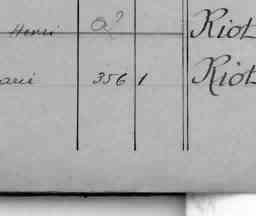 Henri a? Riot
arie 356 1 Riot